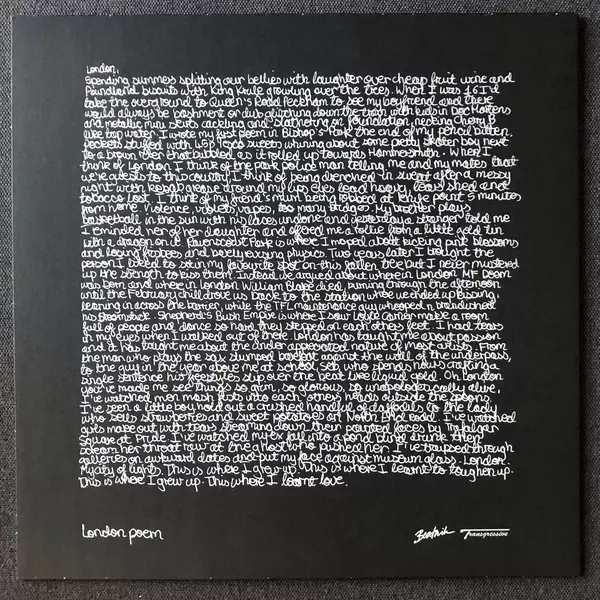 London,
Spending summers splitting our bellies with laughter over cheap fruit wine and
Poundland biscuits with King Krule growling over the trees. When I was 16 I'd
take the overground to Queen's Road Peckham to see my boyfriend and there
would always be bashment or dub glitching down the train with kids in Doc Martens
and metallic mini skirts cackling and slathering on foundation, necking cherry B
like tap water. I wrote my first poem in Bishop's Park the end of my pencil bitten,
pockets stuffed with sweets whining about some petty skater boy next
to a brown river that bubbled as it rolled up towards Hammersmith. When I
think of London, I think of the park police man telling me and my mates that
we're guests to this country. I think of being drenched in sweat after a messy
night with kebab grease around my lips eyes lead heavy, tears shed and
tobacco lost. I think of my friend's mum being robbed at knife point 5 minutes
from home. Violence, violets, vapes, too many bridges. My brother plays
basketball in the sun with his laces undone and yesterday a stranger told me
I reminded her of her daughter and offered me a toffee from a little gold tin
with a dragon on it. Ravenscourt Park is where I moped about kicking pink blossoms
and losing frisbees and barely revising physics. Two years later I brought the
person I liked to sit in my favourite spot on this fallen tree but I never mustered
up the strength to kiss them. Instead we argued about where in London MF Doom
was born and where in London William Blake died, running through the afternoon
until the February chill drove us back to the station where we ended up kissing,
leaning in across the barrier, while the TFL maintenance guy whooped n brandished
his broomstick. Shepherd's Bush Empire is where I saw Loyle Carner make a room
full of people and dance so hard they stepped on each others feet. I had tears
in my eyes when I walked out of there. London has taught me about passion
and it has taught me about the under appreciated nature of most artists. From
the man who plays the sax slumped barefoot against the wall of the underpass,
to the guy in the year above me at school, Seb, who spends hours crafting a
single sentence his freestyles slip over the beat like liquid gold. Oh London
you've made me see things so grim, so glorious, so unapologetically alive,
I've watched men mash fists into each others heads outside the spoons.
I've seen a little boy hold out a crushed handful of daffodils to the lady
who sells strawberries and sweet potatoes at North End Road. I've watched
guys make out with tears streaming down their painted faces by Trafalgar
Square at Pride. I've watched my ex fall into a pond blind drunk then
scream her throat raw at the ghost who pushed her. I've traipsed through
galleries on awkward dates and put my face against museum glass. London.
My city of lights. This is where I grew up. This is where I learnt to toughen up.
This is where I grew up. This where I learnt love.
London poem
Beatnik
Transgressive